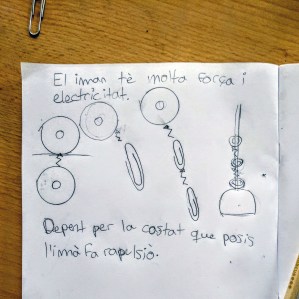 El iman tè molta força i
electricitat.
Depent per la costat que posis
l'imà fa rapelsiò.